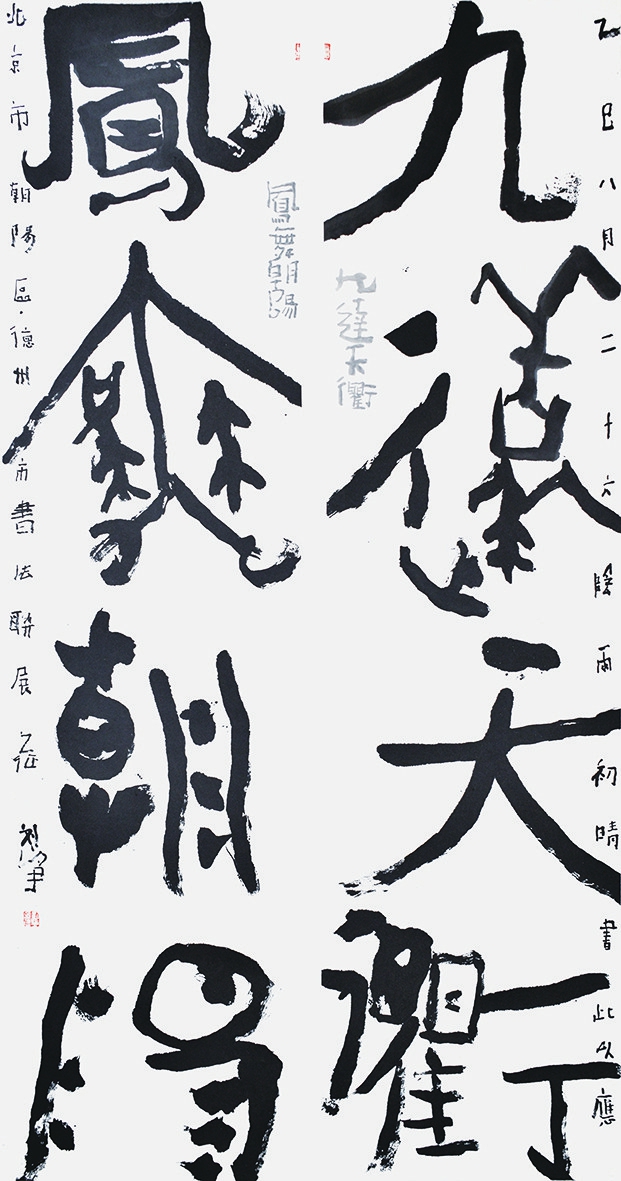 乙巳八月二十六陰雨初晴書此以應
九達天衢
九達天衢
鳳舞朝陽
鳳舞朝陽
北京市朝陽區·德州市書法聯展之征